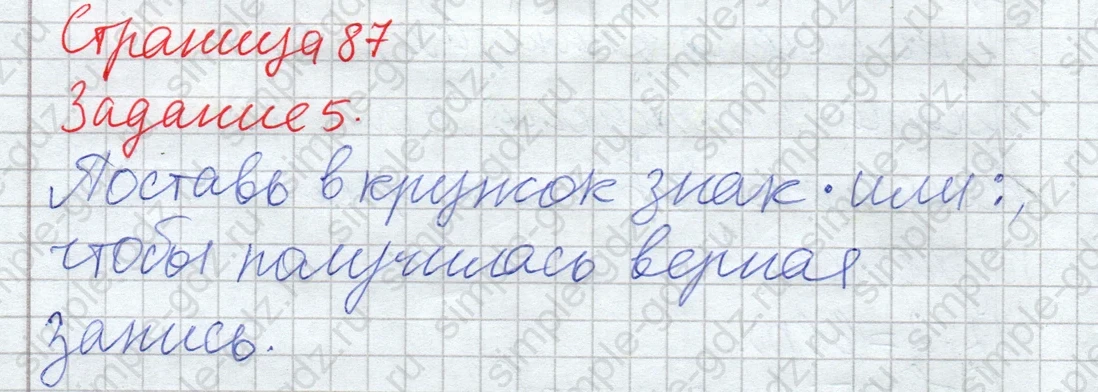 Страница 87
Задание 5.
Поставь в кружок знак · или :,
чтобы получилась верная
запись.